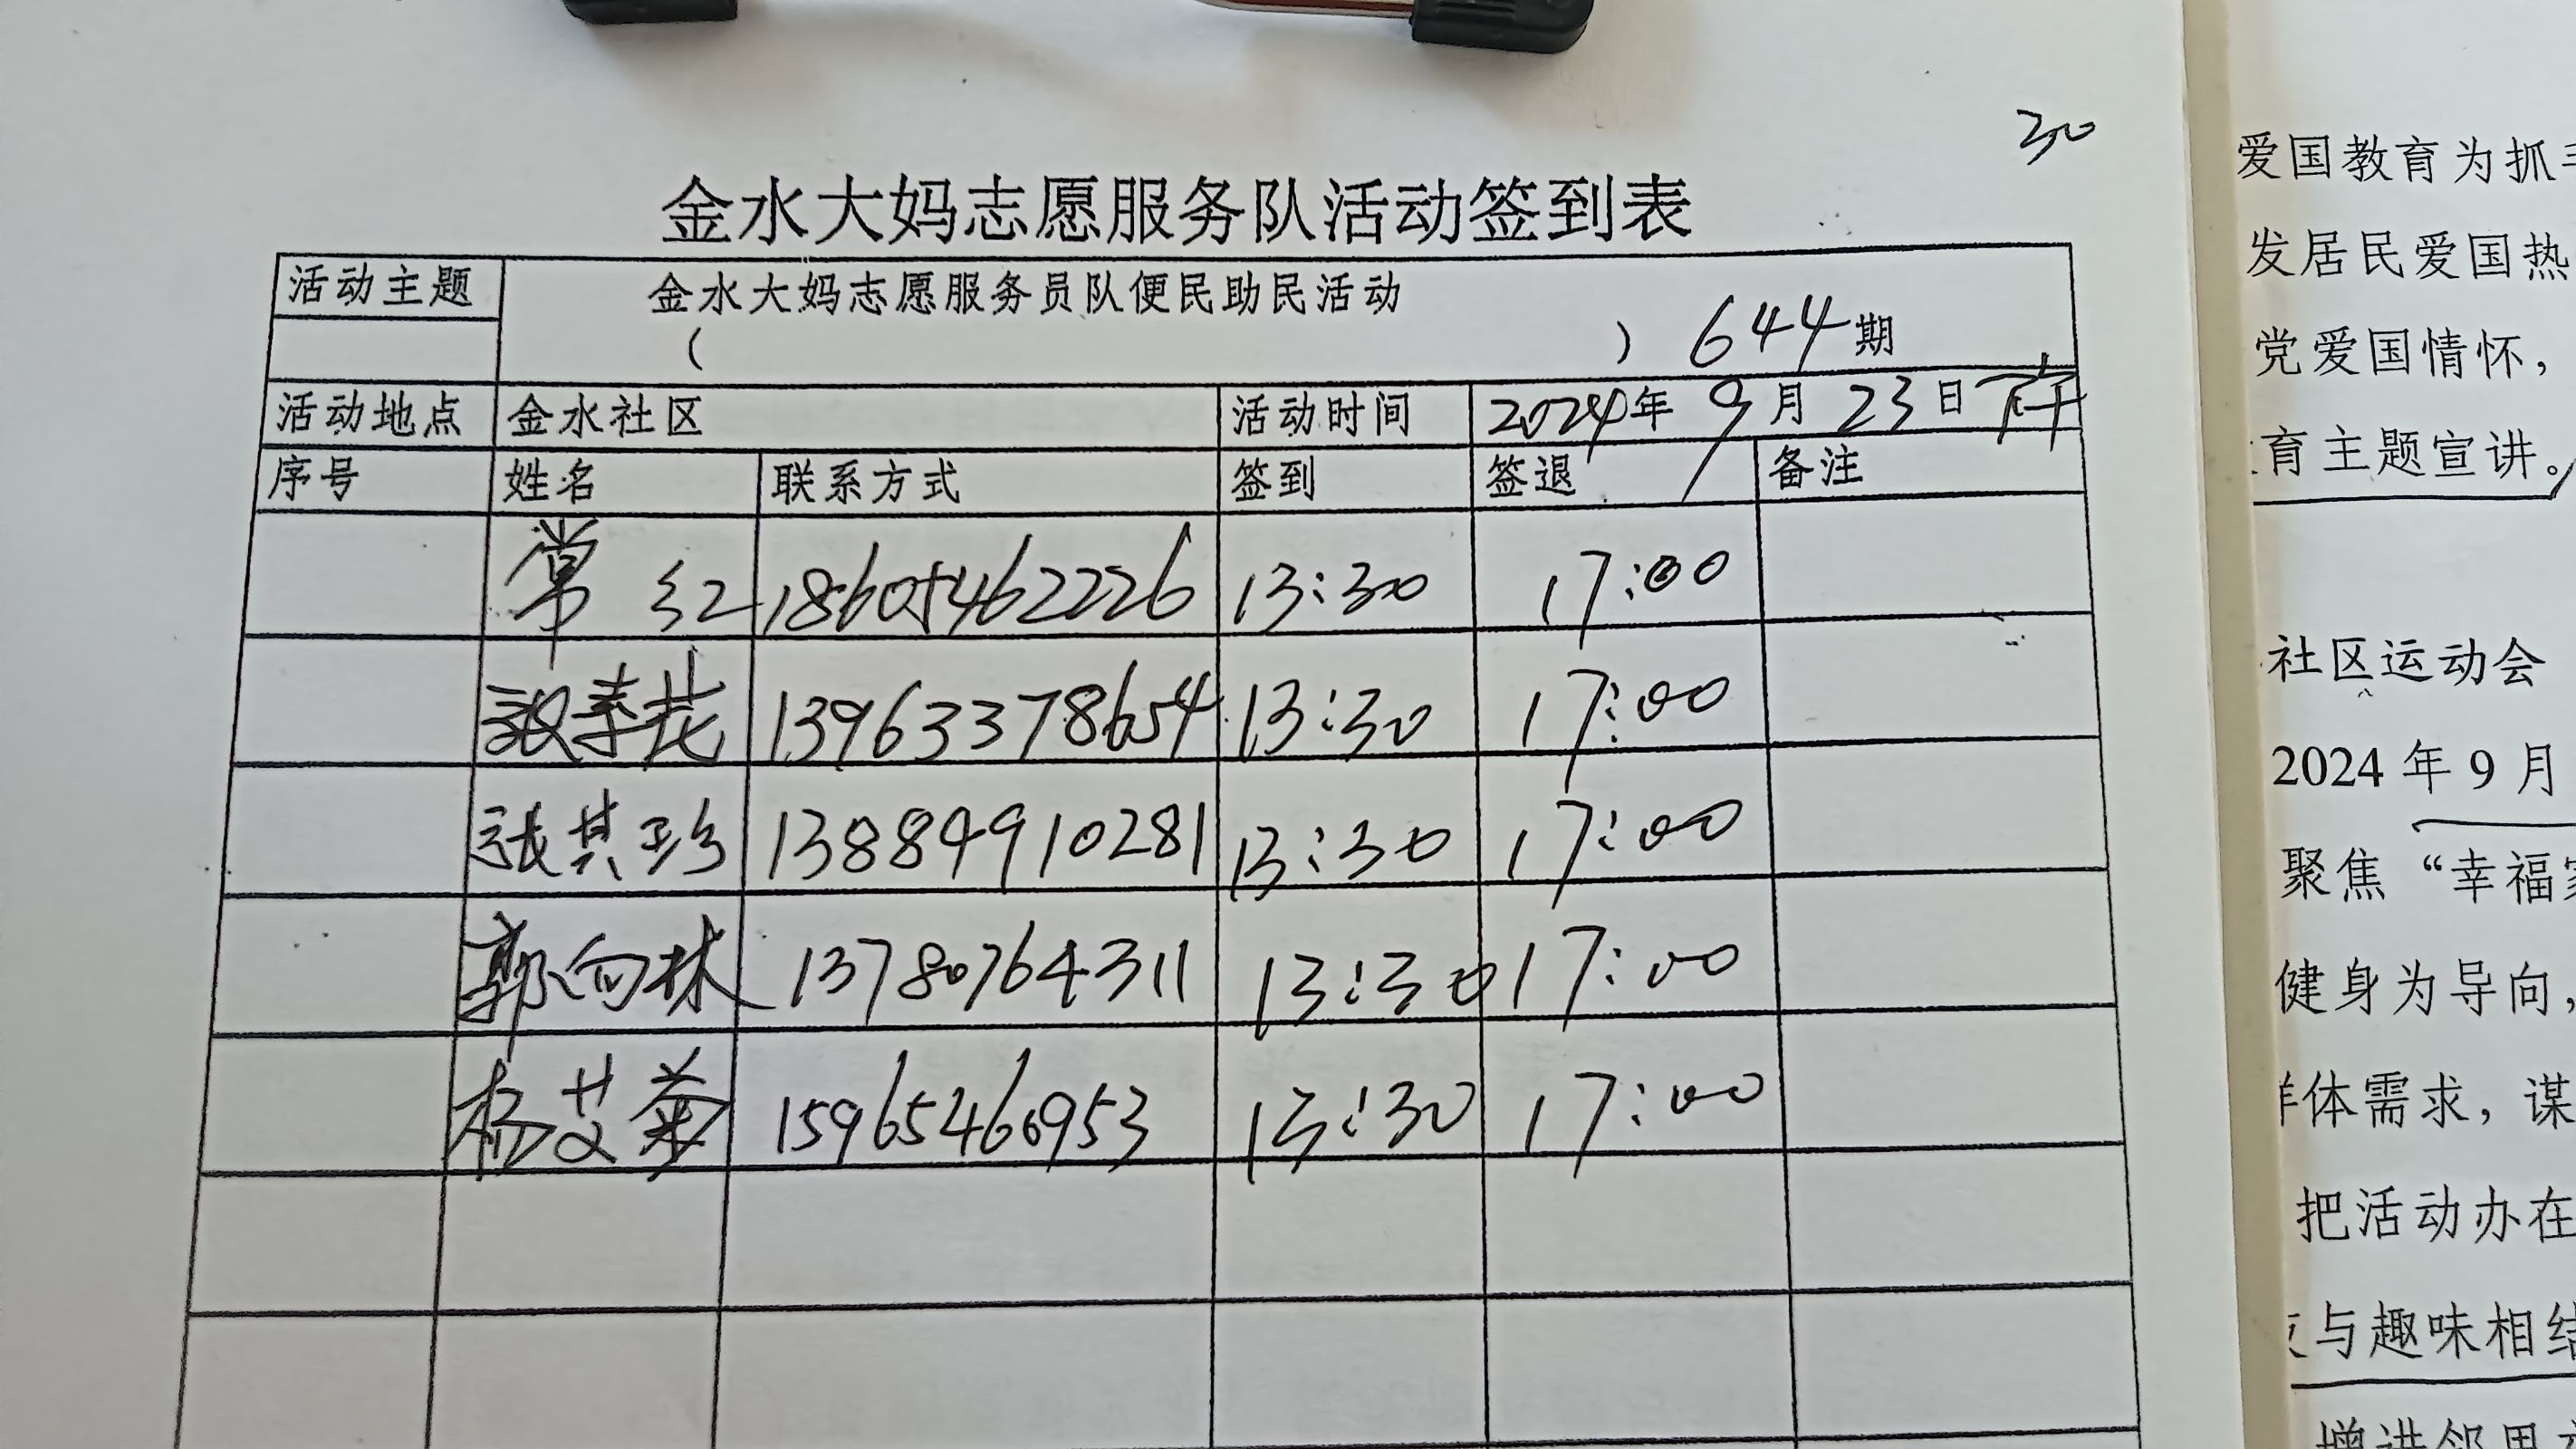 30
金水大妈志愿服务队活动签到表
活动主题 金水大妈志愿服务员队便民助民活动
( ) 644期
活动地点 金水社区 活动时间 2024年 9月 23日 下午
序号 姓名 联系方式 签到 签退 备注
常红 18605462226 13:30 17:00
13963378654 13:30 17:00
张其珍 13884910281 13:30 17:00
郭向林 13780764311 13:30 17:00
杨艾菊 15965460953 13:30 17:00
爱国教育为抓
发居民爱国热
党爱国情怀，
育主题宣讲。
社区运动会
2024 年 9 月
聚焦 “幸福
健身为导向，
体需求，谋
把活动办在
与趣味相结
增进邻里